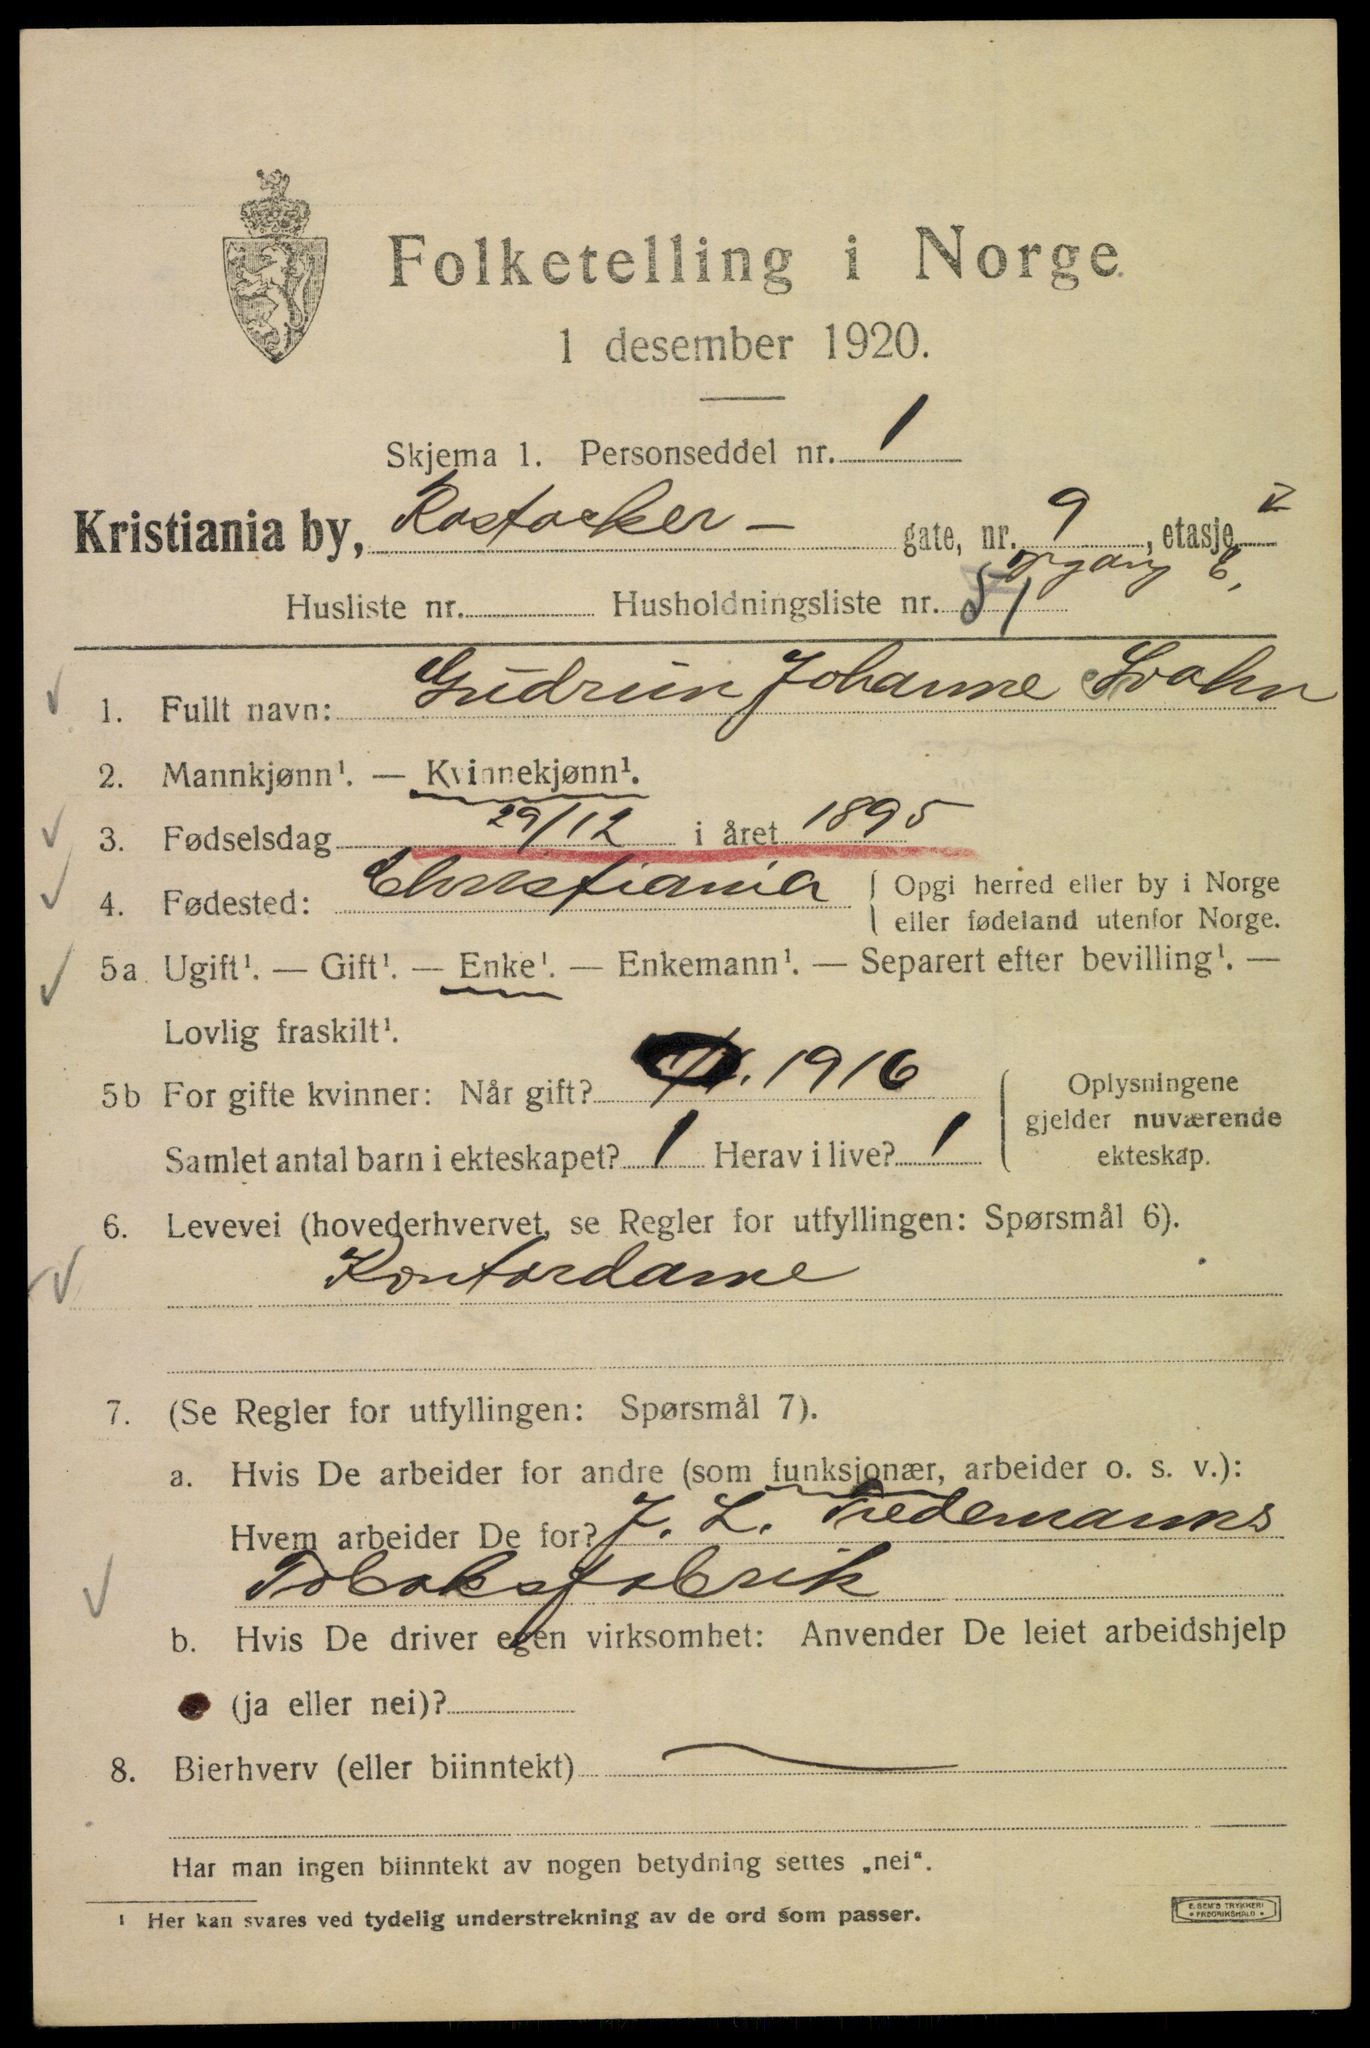 Folketelling i Norge
1 desember 1920.
Skjema 1. Personseddel nr. 1
Kristiania by, Rostocker - gate, nr. 9, etasje
opgang 6,
Husliste nr. Husholdningsliste nr. 51
1. Fullt navn: Gudrun Johanne Svahn
2. Mannkjønn¹. — Kvinnekjønn¹.
3. Fødselsdag 29/12 i året 1895
4. Fødested: Christiania { Opgi herred eller by i Norge
eller fødeland utenfor Norge.
5a Ugift¹. — Gift¹. — Enke¹. — Enkemann¹. — Separert efter bevilling¹. —
Lovlig fraskilt¹.
5b For gifte kvinner: Når gift? 1916
Samlet antal barn i ekteskapet? 1 Herav i live? 1
Oplysningene
gjelder nuværende
ekteskap.
6. Levevei (hovederhvervet, se Regler for utfyllingen: Spørsmål 6).
Kontordame
7. (Se Regler for utfyllingen: Spørsmål 7).
a. Hvis De arbeider for andre (som funksjonær, arbeider o. s. v.):
Hvem arbeider De for? J. L. Tiedemanns
Tobaksfabrik
b. Hvis De driver egen virksomhet: Anvender De leiet arbeidshjelp
(ja eller nei)?
8. Bierhverv (eller biinntekt) —
Har man ingen biinntekt av nogen betydning settes „nei“.
¹ Her kan svares ved tydelig understrekning av de ord som passer.
E. SEM'S TRYKKERI
• FREDRIKSHALD •